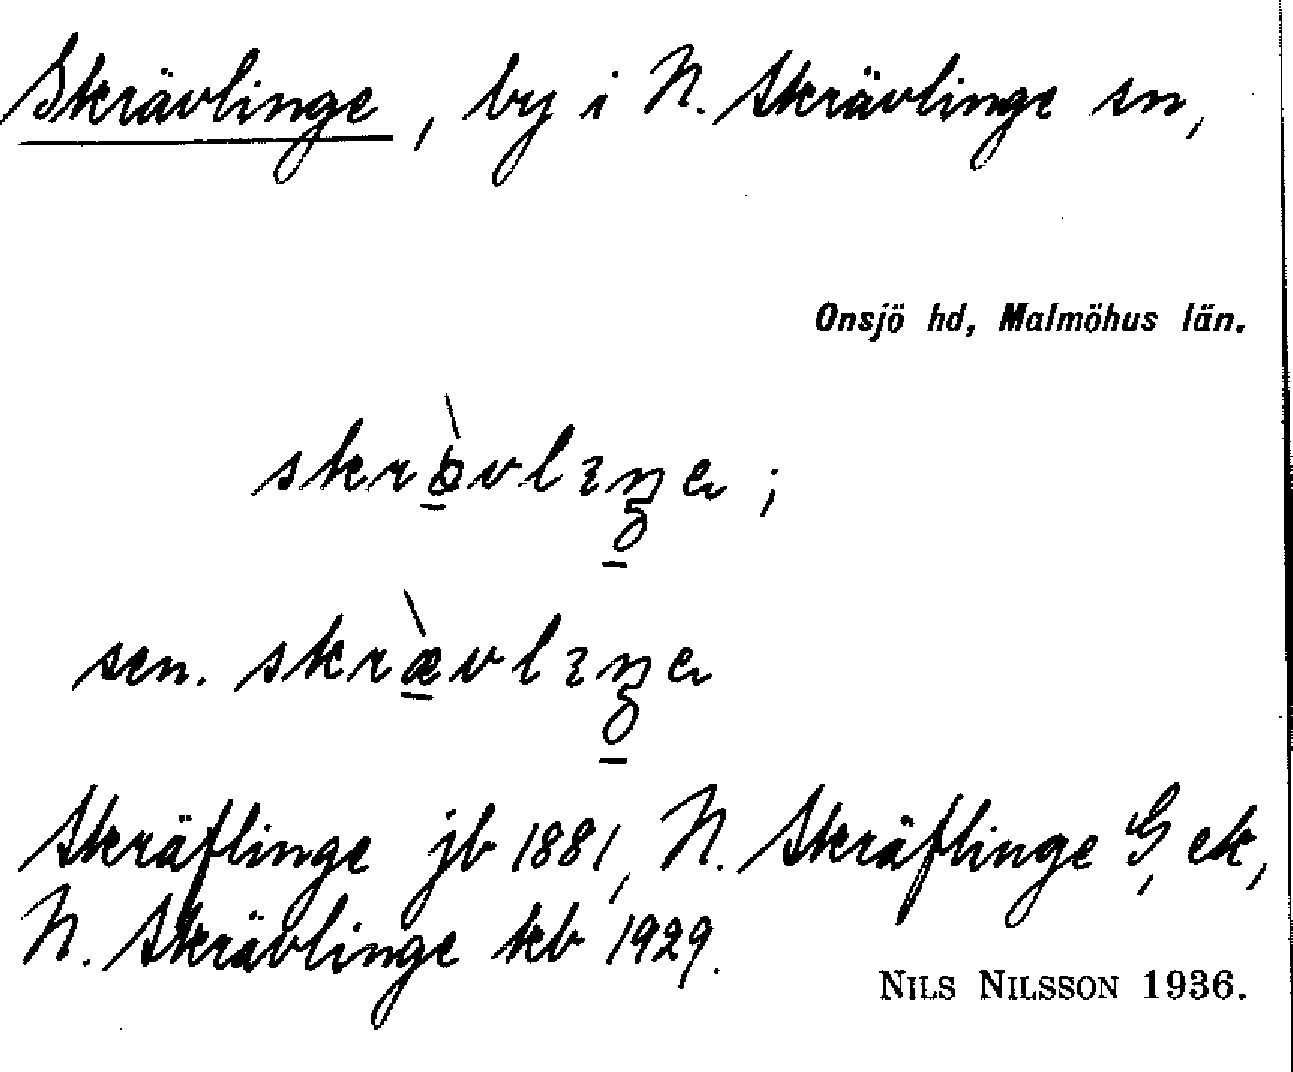 Skrävlinge, by i N. Skrävlinge sn,
Onsjö hd, Malmöhus län.
sen.
Skräflinge jb 1881, N. Skräflinge G, ek,
N. Skrävlinge kb 1929.
NILS NILSSON 1936.